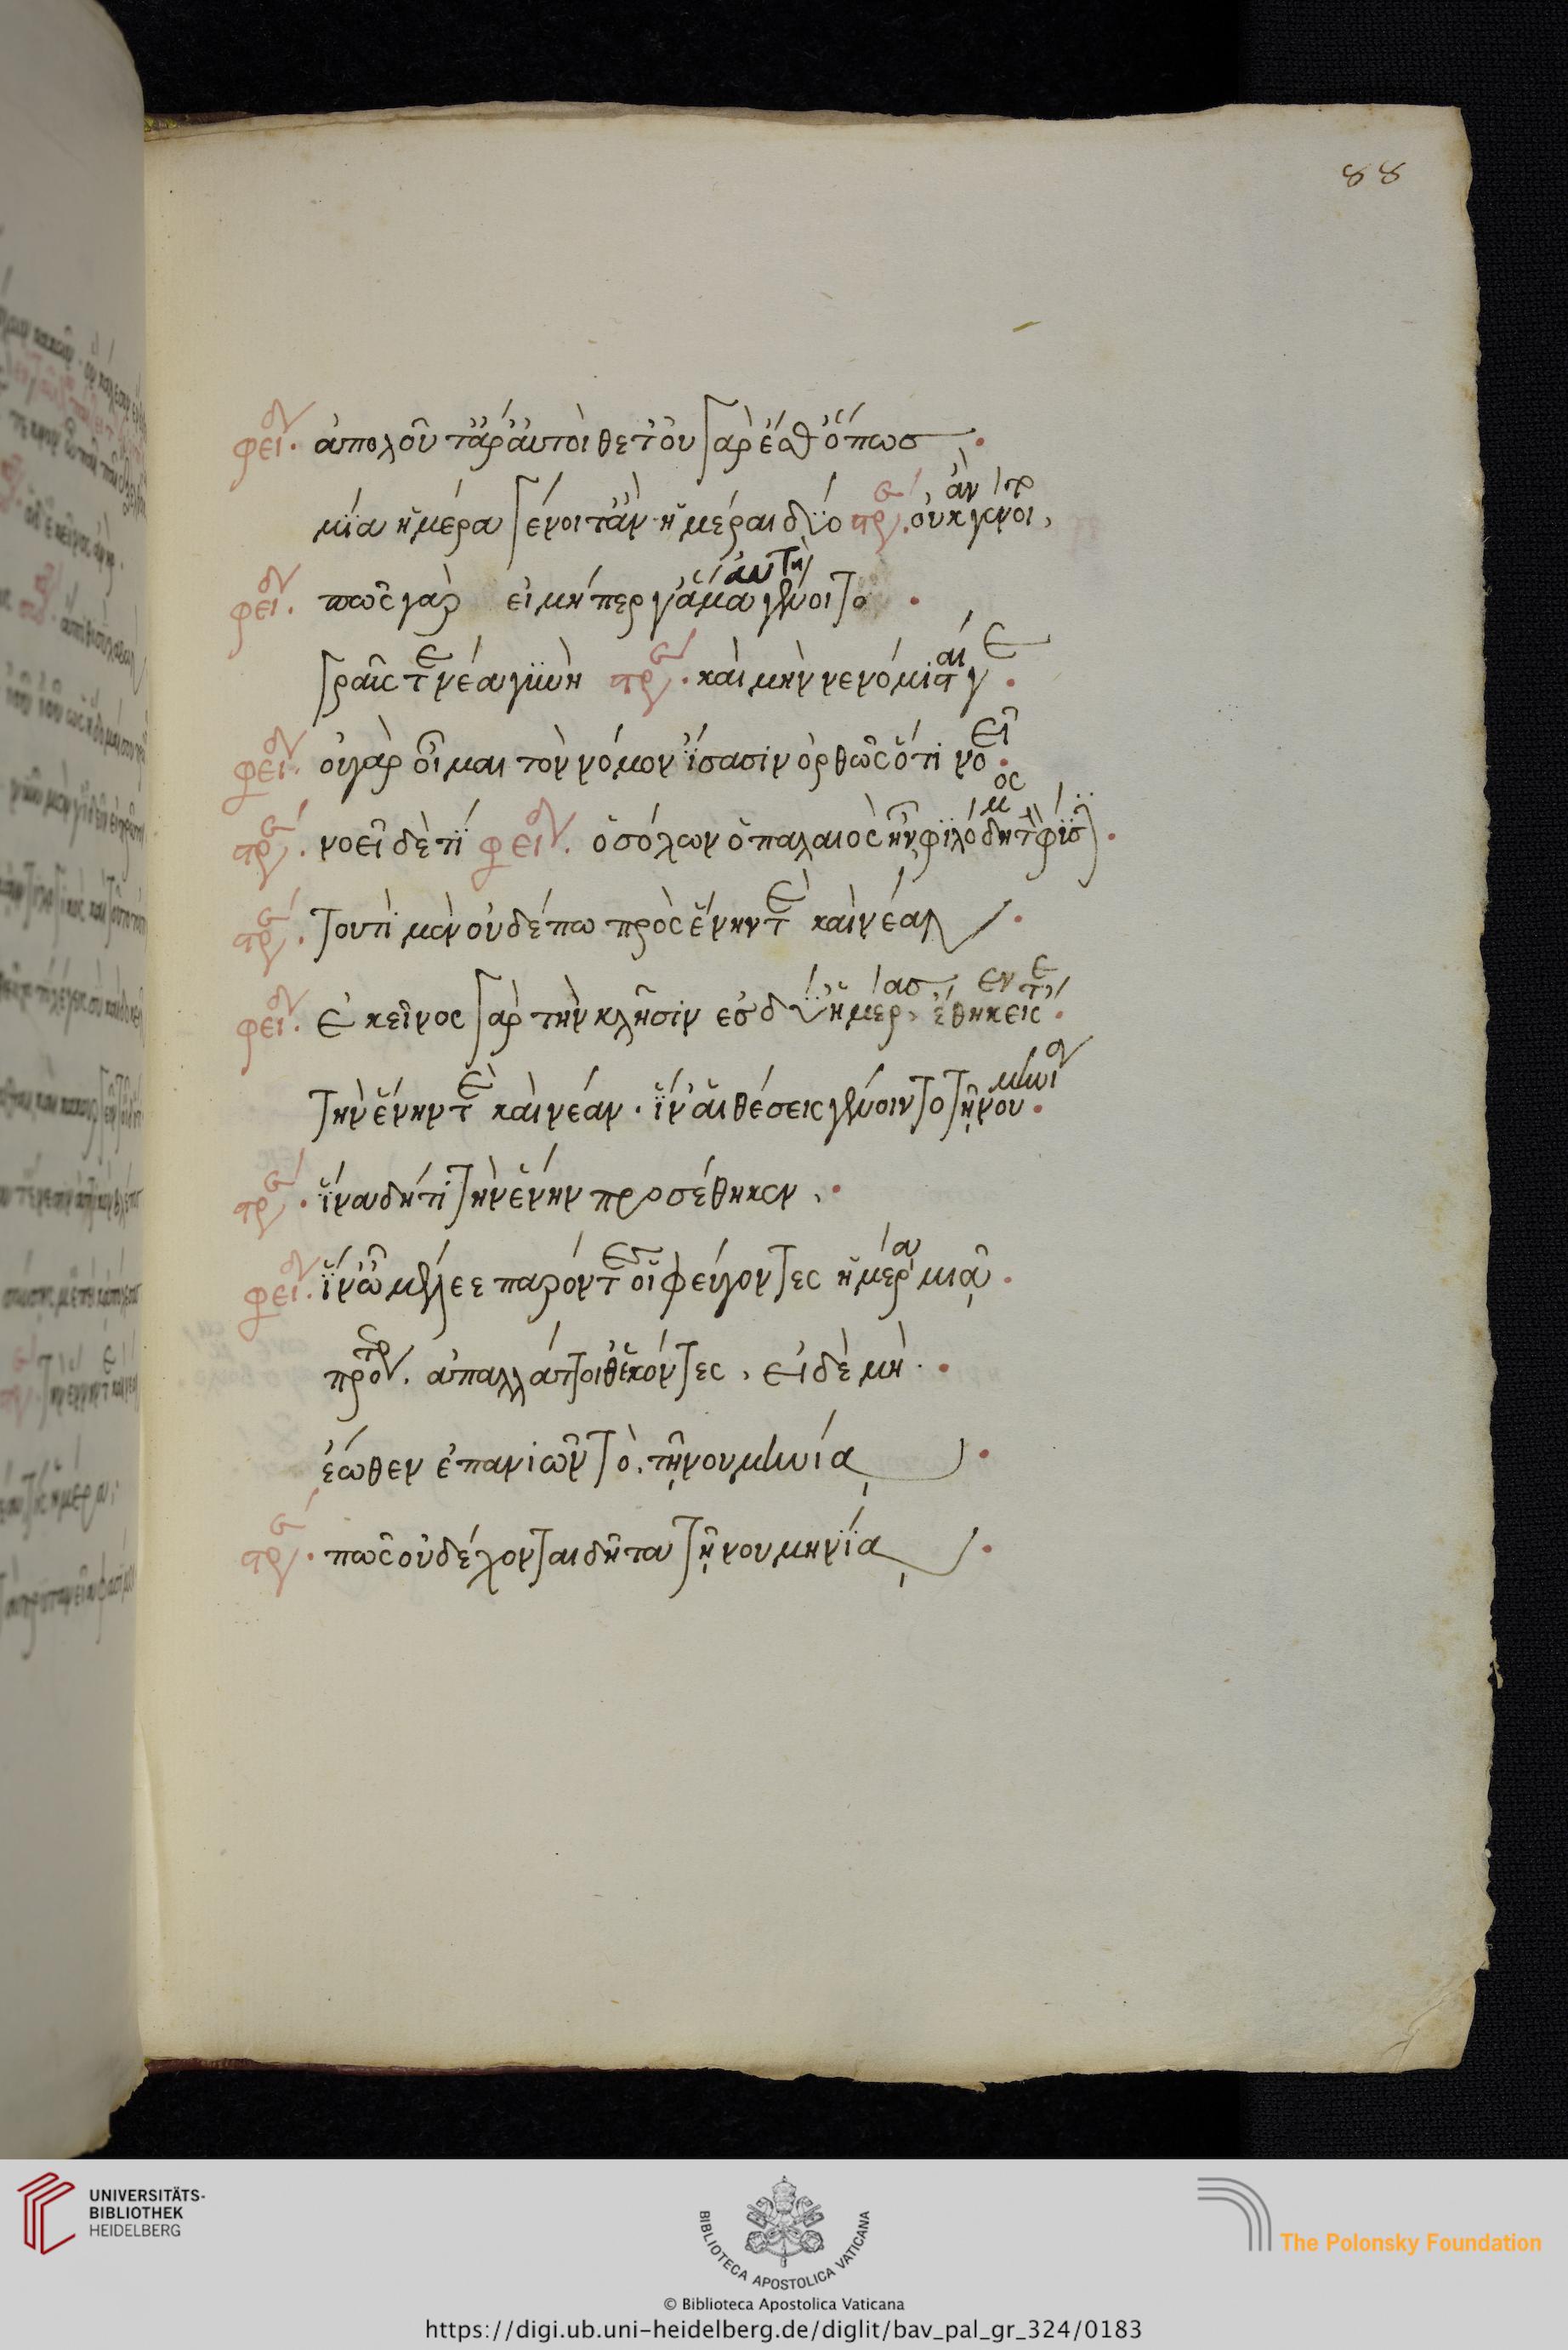 88
φειδ. ἀπολοῦντ' ἄρ' αὐτοὶ θέντες· οὐ γὰρ ἔσθ' ὅπως
μία ἡμέρα γένοιτ' ἂν ἡμέραι δύο στρ. οὐκ ἂν γένοιτο,
φειδ. πῶς γὰρ εἰ μήπερ γ' ἅμα αὐτὴ γένοιτο
γραῦς τε νέα γυνὴ στρ. καὶ μὴν νενόμισταί γε
φειδ. οὐ γὰρ οἶμαι τὸν νόμον ἴσασιν ὀρθῶς ὅτι νοεῖ
στρ. νοεῖ δὲ τί φειδ. ὁ σόλων ὁ παλαιὸς ἦν φιλόδημος τὴν φύσιν
στρ. τουτὶ μὲν οὐδέπω πρὸς ἕνην τε καὶ νέαν
φειδ. ἐκεῖνος γὰρ τὴν κλῆσιν ἐς δύ' ἡμέρας ἔθηκεν εἴς τε
τὴν ἕνην τε καὶ νέαν. ἵν' αἱ θέσεις γένοιντο τῇ νουμηνίᾳ
στρ. ἵνα δὴ τί τὴν ἕνην προσέθηκεν,
φειδ. ἵν' ὦ μέλεε παρόντες οἱ φεύγοντες ἡμέρᾳ μιᾷ
πρότερον. ἀπαλλάττοινθ' ἑκόντες, εἰ δὲ μὴ
ἕωθεν ἐπανιῶντο, τῇ νουμηνίᾳ
στρ. πῶς οὐ δέχονται δῆτα τῇ νουμηνίᾳ
UNIVERSITÄTS-
BIBLIOTHEK
HEIDELBERG
BIBLIOTECA APOSTOLICA VATICANA
The Polonsky Foundation
© Biblioteca Apostolica Vaticana
https://digi.ub.uni-heidelberg.de/diglit/bav_pal_gr_324/0183